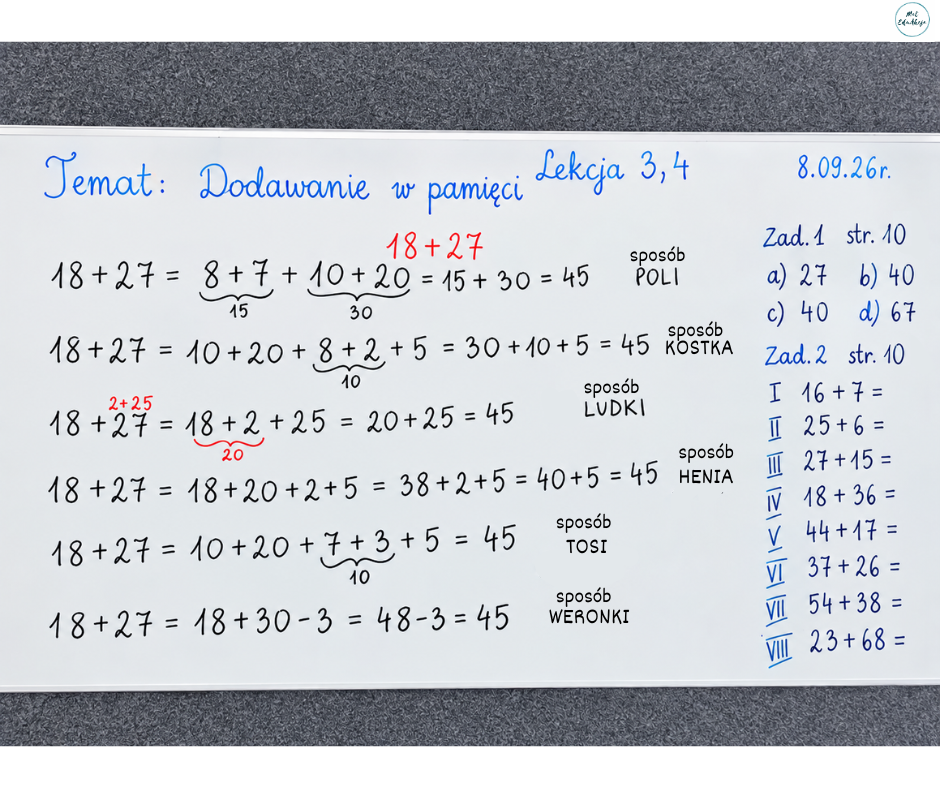 Mel
EduAkcje
Temat: Dodawanie w pamięci
Lekcja 3,4
8.09.26r.
18+27
18+27 = 8+7 + 10+20 = 15+30 = 45
15
30
sposób
POLI
18+27 = 10+20+8+2+5 = 30+10+5 = 45
10
sposób
KOSTKA
2+25
18+27 = 18+2+25 = 20+25 = 45
20
sposób
LUDKI
18+27 = 18+20+2+5 = 38+2+5 = 40+5 = 45
sposób
HENIA
18+27 = 10+20+7+3+5 = 45
10
sposób
TOSI
18+27 = 18+30-3 = 48-3 = 45
sposób
WERONKI
Zad. 1 str. 10
a) 27 b) 40
c) 40 d) 67
Zad. 2 str. 10
I 16+7=
II 25+6=
III 27+15=
IV 18+36=
V 44+17=
VI 37+26=
VII 54+38=
VIII 23+68=